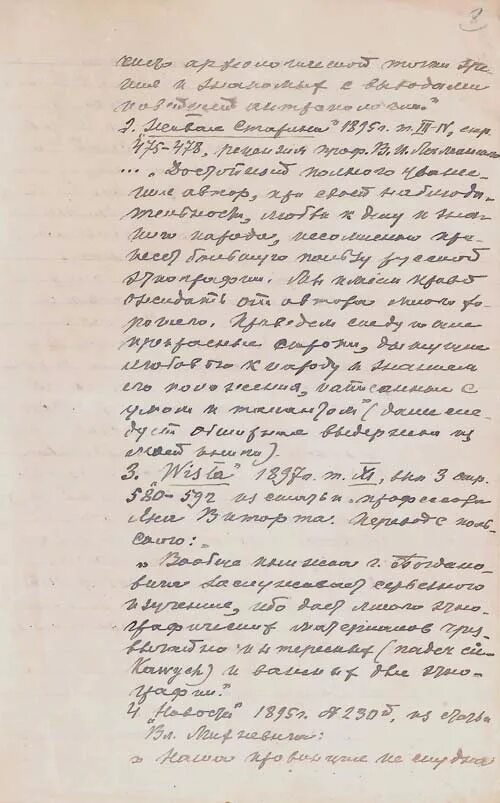 чисто археологической точки зре-
ния и знакомых с выводами
новейшей антропологии."
2. "Живая Старина" 1895 г. т. III-IV, стр.
475-478, рецензия проф. В. И. Ламанского
... "Достойный полного уваже-
ния автор, при своей наблюда-
тельности, любви к делу и зна-
нию народа, несомненно при-
несет большую пользу русской
этнографии. Мы имеем право
ожидать от автора много хо-
рошего. Приведем следующие
прекрасные строки, дышущие
любовью к народу и знанием
его положения, написанные с
умом и талантом" (далее сле-
дуют обширные выдержки из
моей книги).
3. "Wisła" 1897 г. т. XI, вып 3 стр.
580-592 из статьи профессора
Яна Виторта. Перевод с поль-
ского:
"Вообще книжка г. Богдано-
вича заслуживает серьезного
изучения, ибо дает много этно-
графических материалов чрез-
вычайно интересных (nader cie-
kawych) и важных для этно-
графии."
4. "Новости" 1895 г. № 230, из статьи
Вл.
" Наша провинция не скудна